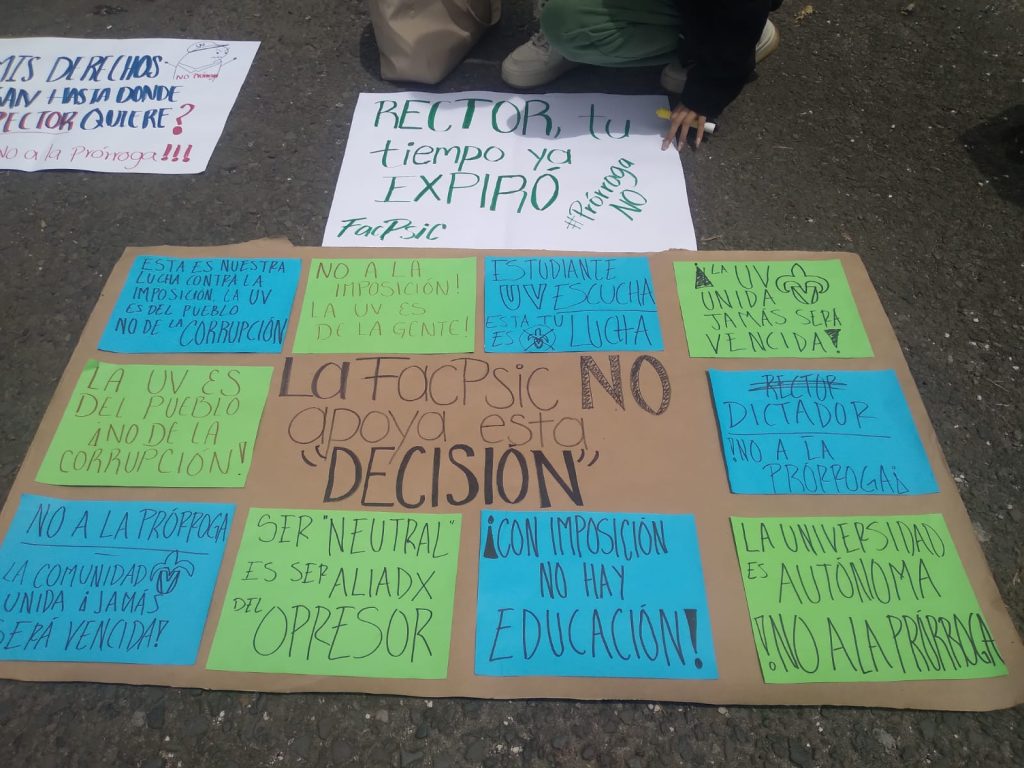 MIS DERECHOS
HASTA DONDE
RECTOR QUIERE?
No a la Prórroga!!!
RECTOR, tu
tiempo ya
EXPIRÓ
#Prórroga
NO
FacPsic
ESTA ES NUESTRA
LUCHA CONTRA LA
IMPOSICIÓN. LA UV
ES DEL PUEBLO
NO DE LA CORRUPCIÓN
NO A LA
IMPOSICIÓN!
LA UV ES
DE LA GENTE!
ESTUDIANTE
UV ESCUCHA
ESTA TU
ES LUCHA
¡LA UV
UNIDA
JAMÁS SERÁ
VENCIDA!
LA UV ES
DEL PUEBLO
¡NO DE LA
CORRUPCIÓN!
La FacPsic NO
apoya esta
"DECISIÓN"
RECTOR
DICTADOR
!NO A LA
PRÓRROGA¡
NO A LA PRÓRROGA
LA COMUNIDAD
UNIDA ¡JAMÁS
SERÁ VENCIDA!
SER "NEUTRAL"
ES SER ALIADX
DEL OPRESOR
¡CON IMPOSICIÓN
NO HAY
EDUCACIÓN!
LA UNIVERSIDAD
ES AUTÓNOMA
!NO A LA PRÓRROGA